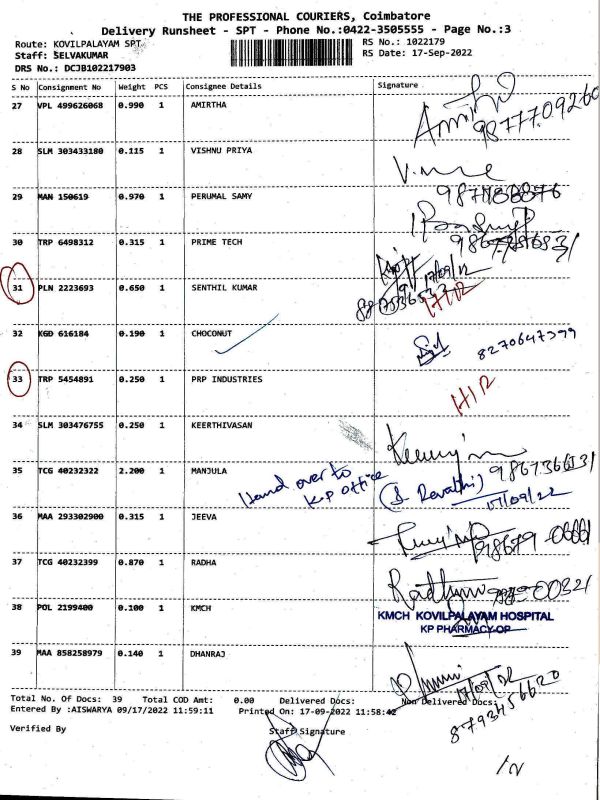 THE PROFESSIONAL COURIERS, Coimbatore
Delivery Runsheet - SPT - Phone No.:0422-3505555 - Page No.:3
Route: KOVILPALAYAM SPT
RS No.: 1022179
Staff: SELVAKUMAR
RS Date: 17-Sep-2022
DRS No.: DCJB102217903
S No Consignment No Weight PCS Consignee Details Signature
27 VPL 499626068 0.990 1 AMIRTHA
9877709260
28 SLM 303433180 0.115 1 VISHNU PRIYA
29 MAN 150619 0.970 1 PERUMAL SAMY
30 TRP 6498312 0.315 1 PRIME TECH
17/09/22
31 PLN 2223693 0.650 1 SENTHIL KUMAR
32 KGD 616184 0.190 1 CHOCONUT
8270647399
33 TRP 5454891 0.250 1 PRP INDUSTRIES
34 SLM 303476755 0.250 1 KEERTHIVASAN
35 TCG 40232322 2.200 1 MANJULA
Hand over to
K.P office
(S. Revathi)
17/09/22
36 MAA 293302900 0.315 1 JEEVA
37 TCG 40232399 0.870 1 RADHA
38 POL 2199400 0.100 1 KMCH
KMCH KOVILPALAYAM HOSPITAL
KP PHARMACY-OP
39 MAA 858258979 0.140 1 DHANRAJ
17/09/22
8793456620
Total No. Of Docs: 39 Total COD Amt: 0.00 Delivered Docs: Non Delivered Docs:
Entered By :AISWARYA 09/17/2022 11:59:11 Printed On: 17-09-2022 11:58:42
Verified By Staff Signature